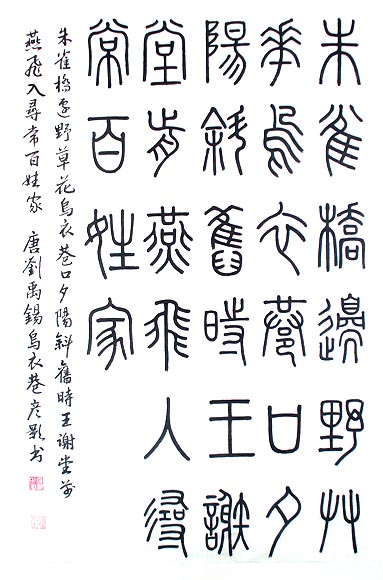 朱雀橋邊野艸
華烏衣巷口夕
陽斜舊時王謝
堂前燕飛入尋
常百姓家
朱雀橋邊野草花烏衣巷口夕陽斜舊時王謝堂前
燕飛入尋常百姓家 唐劉禹錫烏衣巷彦书